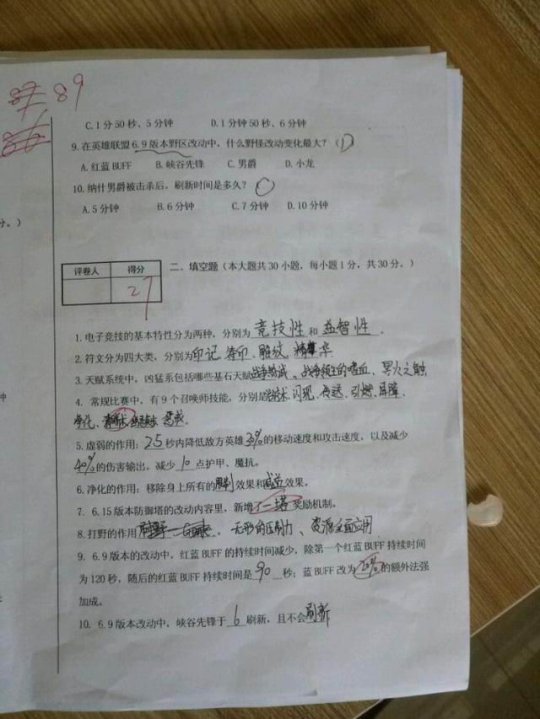 89
C.1分50秒、5分钟 D.1分50秒、6分钟
9.在英雄联盟6.9版本野区改动中，什么野怪改动变化最大？（D）
A.红蓝BUFF B.峡谷先锋 C.男爵 D.小龙
10.纳什男爵被击杀后，刷新时间是多久？
A.5分钟 B.6分钟 C.7分钟 D.10分钟
分。）
评卷人 得分
27
二、填空题（本大题共30小题，每小题1分，共30分。）
1.电子竞技的基本特性分为两种，分别为竞技性和益智性.
2.符文分为四大类，分别为印记、符印、雕纹、精华
3.天赋系统中，凶猛系包括哪些基石天赋战争热诚、战争领主的嗜血、冥火之触
4.常规比赛中，有9个召唤师技能，分别是治疗术、闪现、传送、引燃、屏障、
净化、惩戒.
5.虚弱的作用：2.5秒内降低敌方英雄30%的移动速度和攻击速度，以及减少
40%的伤害输出，减少10点护甲、魔抗。
6.净化的作用：移除身上所有的限制效果和减益效果。
7. 6.15版本防御塔的改动内容里，新增了一塔奖励机制。
8.打野的作用 、无形的压制力、资源全面应用
9. 6.9版本的改动中，红蓝BUFF的持续时间减少，除第一个红蓝BUFF持续时间
为120秒，随后的红蓝BUFF持续时间是90秒；蓝BUFF改为的额外法强
加成。
10. 6.9版本改动中，峡谷先锋于6刷新，且不会刷新
钟